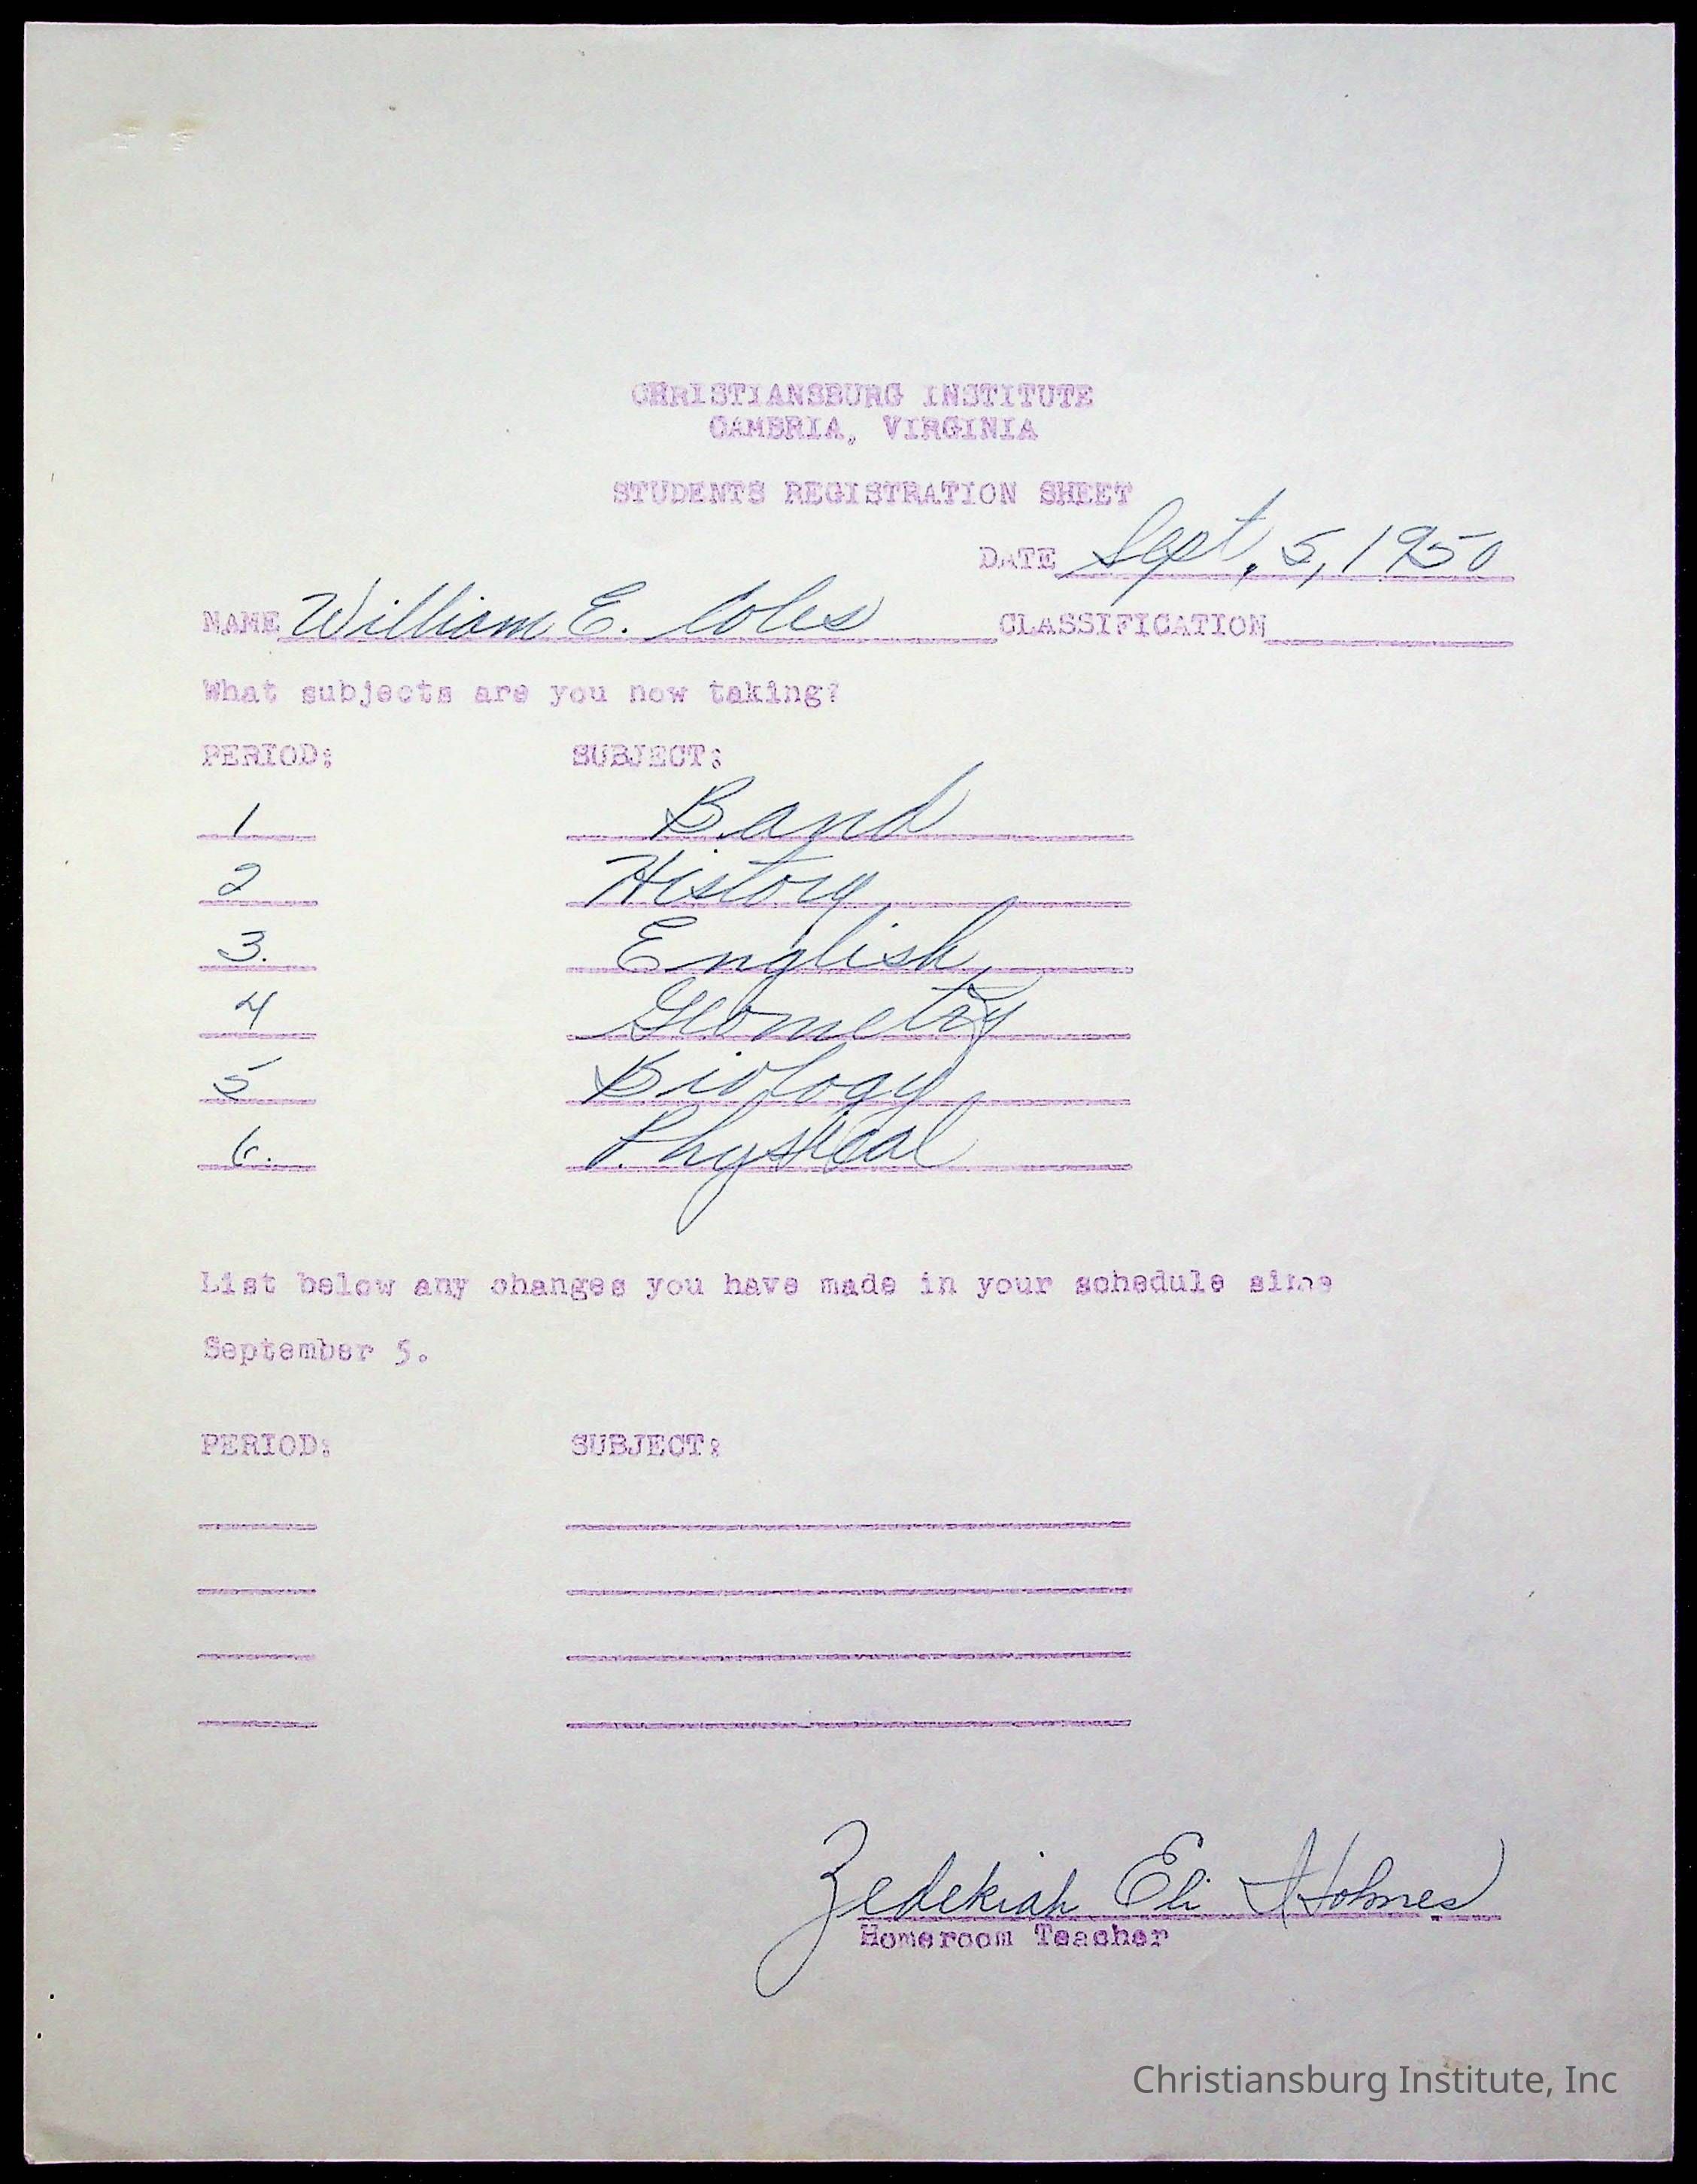 CHRISTIANSBURG INSTITUTE
CAMBRIA, VIRGINIA
STUDENTS REGISTRATION SHEET
DATE Sept. 5, 1950
NAME William E. Coles CLASSIFICATION
What subjects are you now taking?
PERIOD: SUBJECT:
1 Band
2 History
3. English
4 Geometry
5 Biology
6. Physical
List below any changes you have made in your schedule since
September 5.
PERIOD: SUBJECT:
Zedekiah Eli Holmes
Homeroom Teacher
Christiansburg Institute, Inc